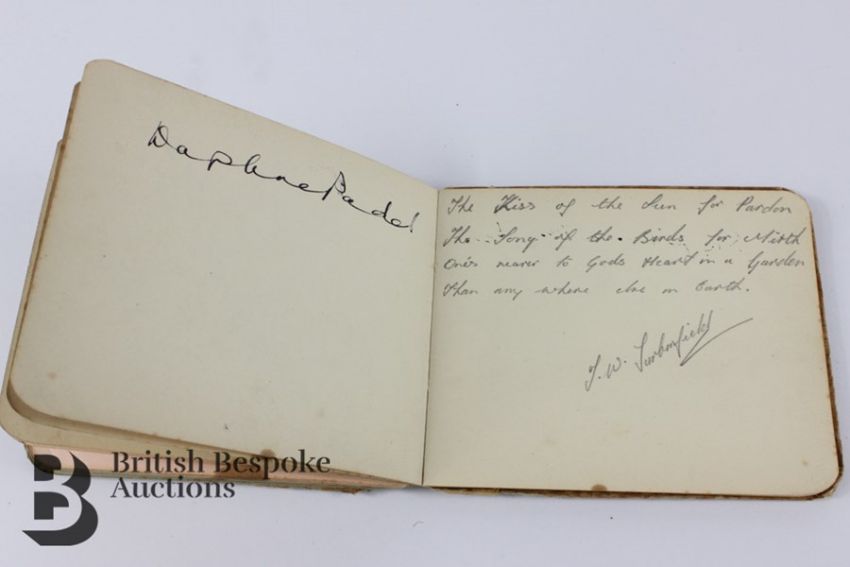 Daphne Padel
The Kiss of the Sun for Pardon
The Song of the Birds for Mirth
One's nearer to Gods Heart in a Garden
Than any where else on Earth.
British Bespoke
Auctions
B